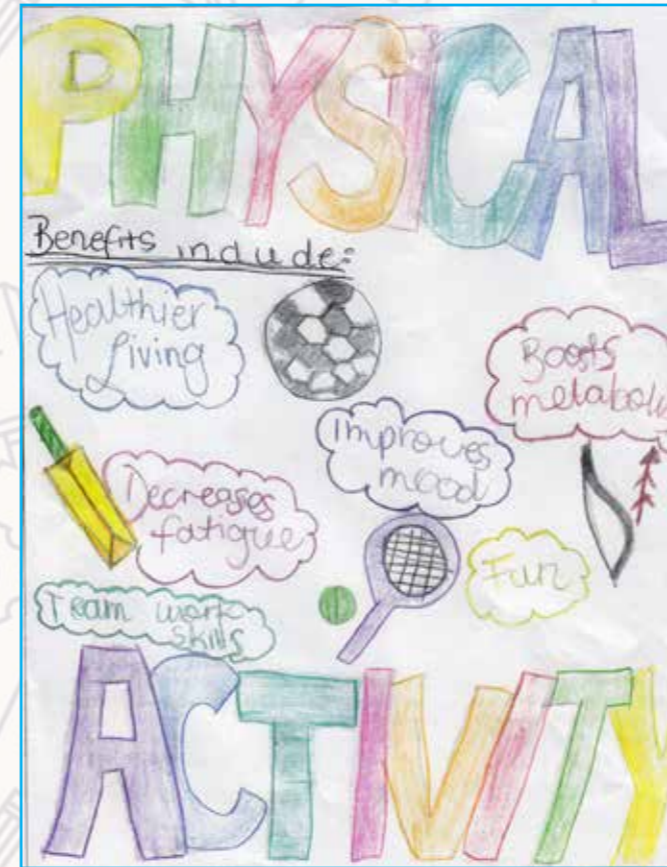 PHYSICAL
Benefits include:
Healthier
Living
Boosts
metabol
Improves
mood
Decreases
fatigue
Fun
Team work
skills
ACTIVITY